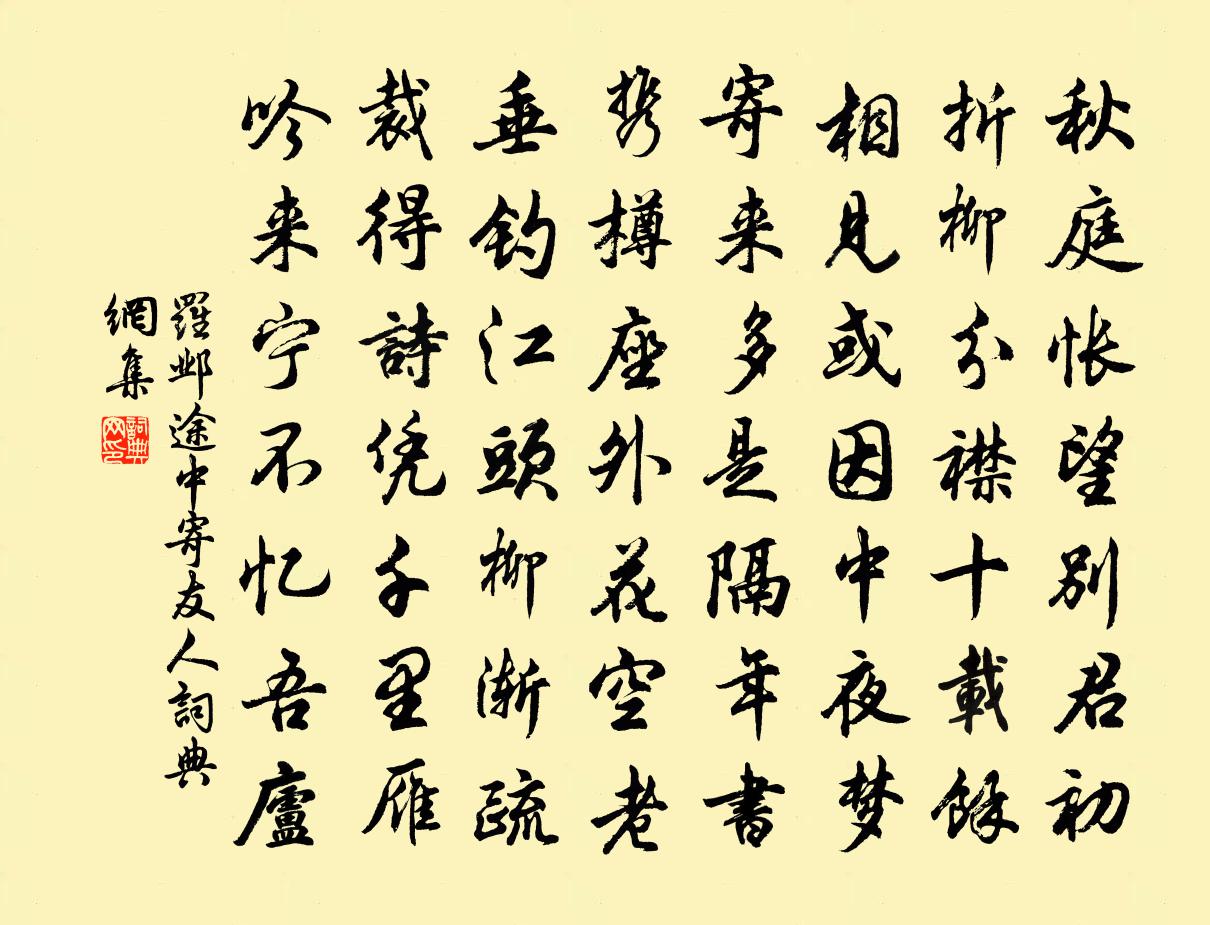 秋庭怅望别君初
折柳分襟十載餘
相見或因中夜梦
寄来多是隔年書
携樽座外花空老
垂钓江頭柳渐疏
裁得詩凭千里雁
吟来宁不忆吾廬
羅邺途中寄友人詞典
網集
詞典
网印